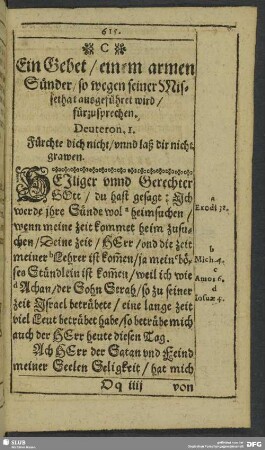 615.
C
Ein Gebet / einem armen
Sünder / so wegen seiner Mis-
sethat ausgeführet wird /
fürzusprechen.
Deuteron. 1.
Fürchte dich nicht / vnnd laß dir nicht
grawen.
HEJliger vnnd Gerechter
GOtt / du hast gesagt : Jch
werde ihre Sünde wol a heimsuchen /
wenn meine zeit kommet heim zusu-
chen / Deine zeit / HErr / vnd die zeit
meiner b Lehrer ist kom̃en / ja mein c bö-
ses Stündlein ist kom̃en / weil ich wie
d Achan / der Sohn Serah / so zu seiner
zeit Jsrael betrübete / eine lange zeit
viel Leut betrübet habe / so betrübe mich
auch der HErr heute diesen Tag.
Ach HErr der Satan vnd Feind
meiner Seelen Seligkeit / hat mich
Dq iiij von
a
Exodi 32.
b
Mich. 4.
c
Amos 6.
d
SLUB
DFG